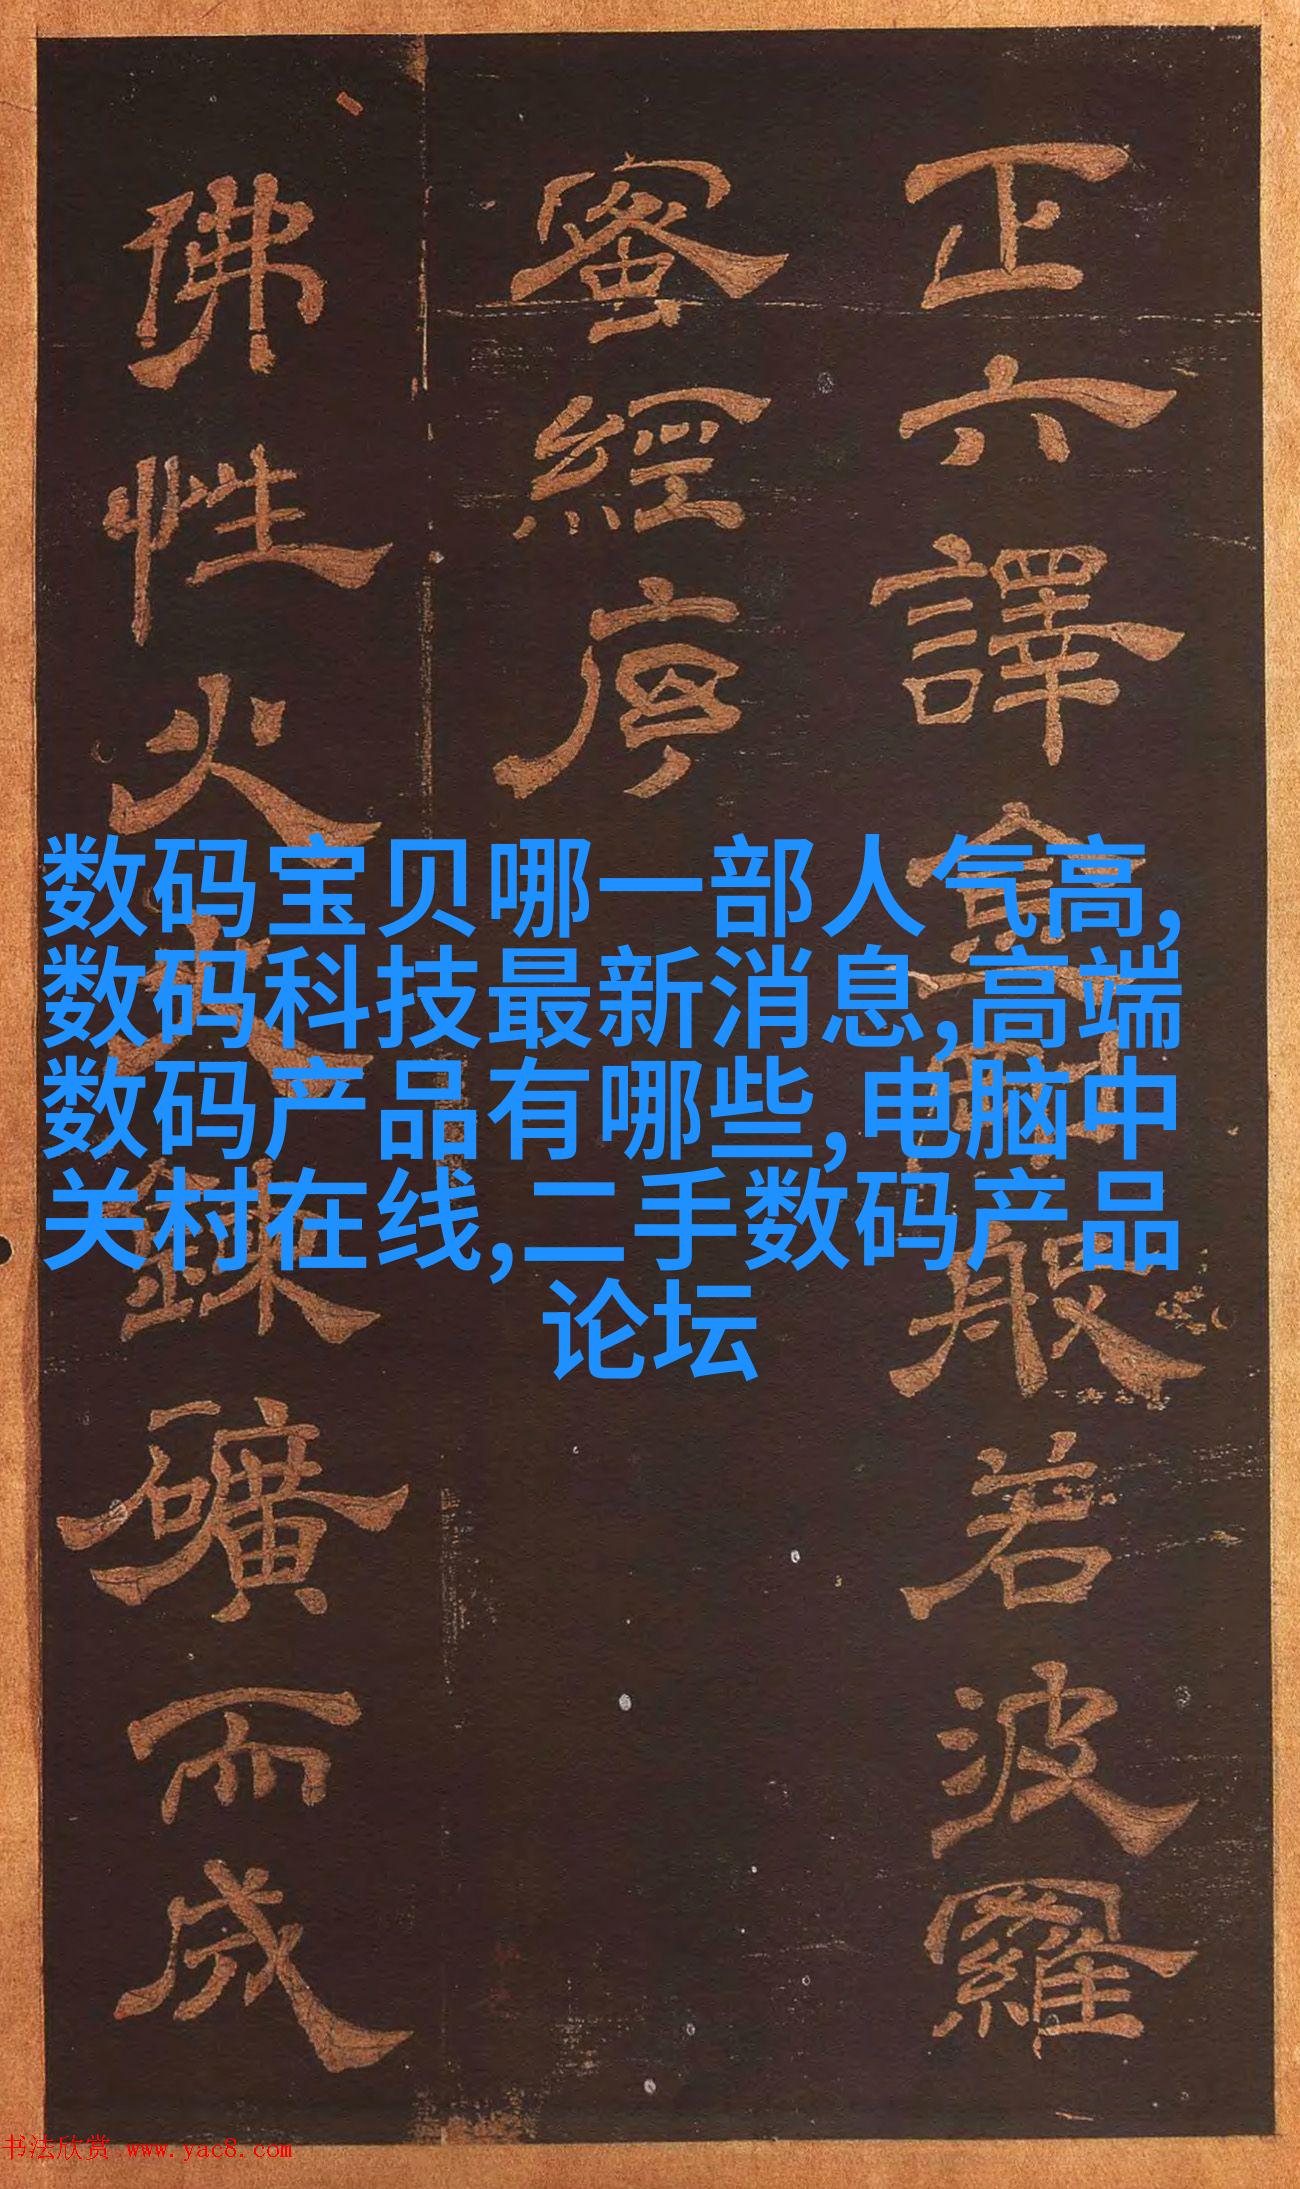 正六譯金剛般若波羅
蜜經序
佛性火鍊礦而成
数码宝贝哪一部人气高,
数码科技最新消息,高端
数码产品有哪些,电脑中
关村在线,二手数码产品
论坛
书法欣赏 www.yac8.com